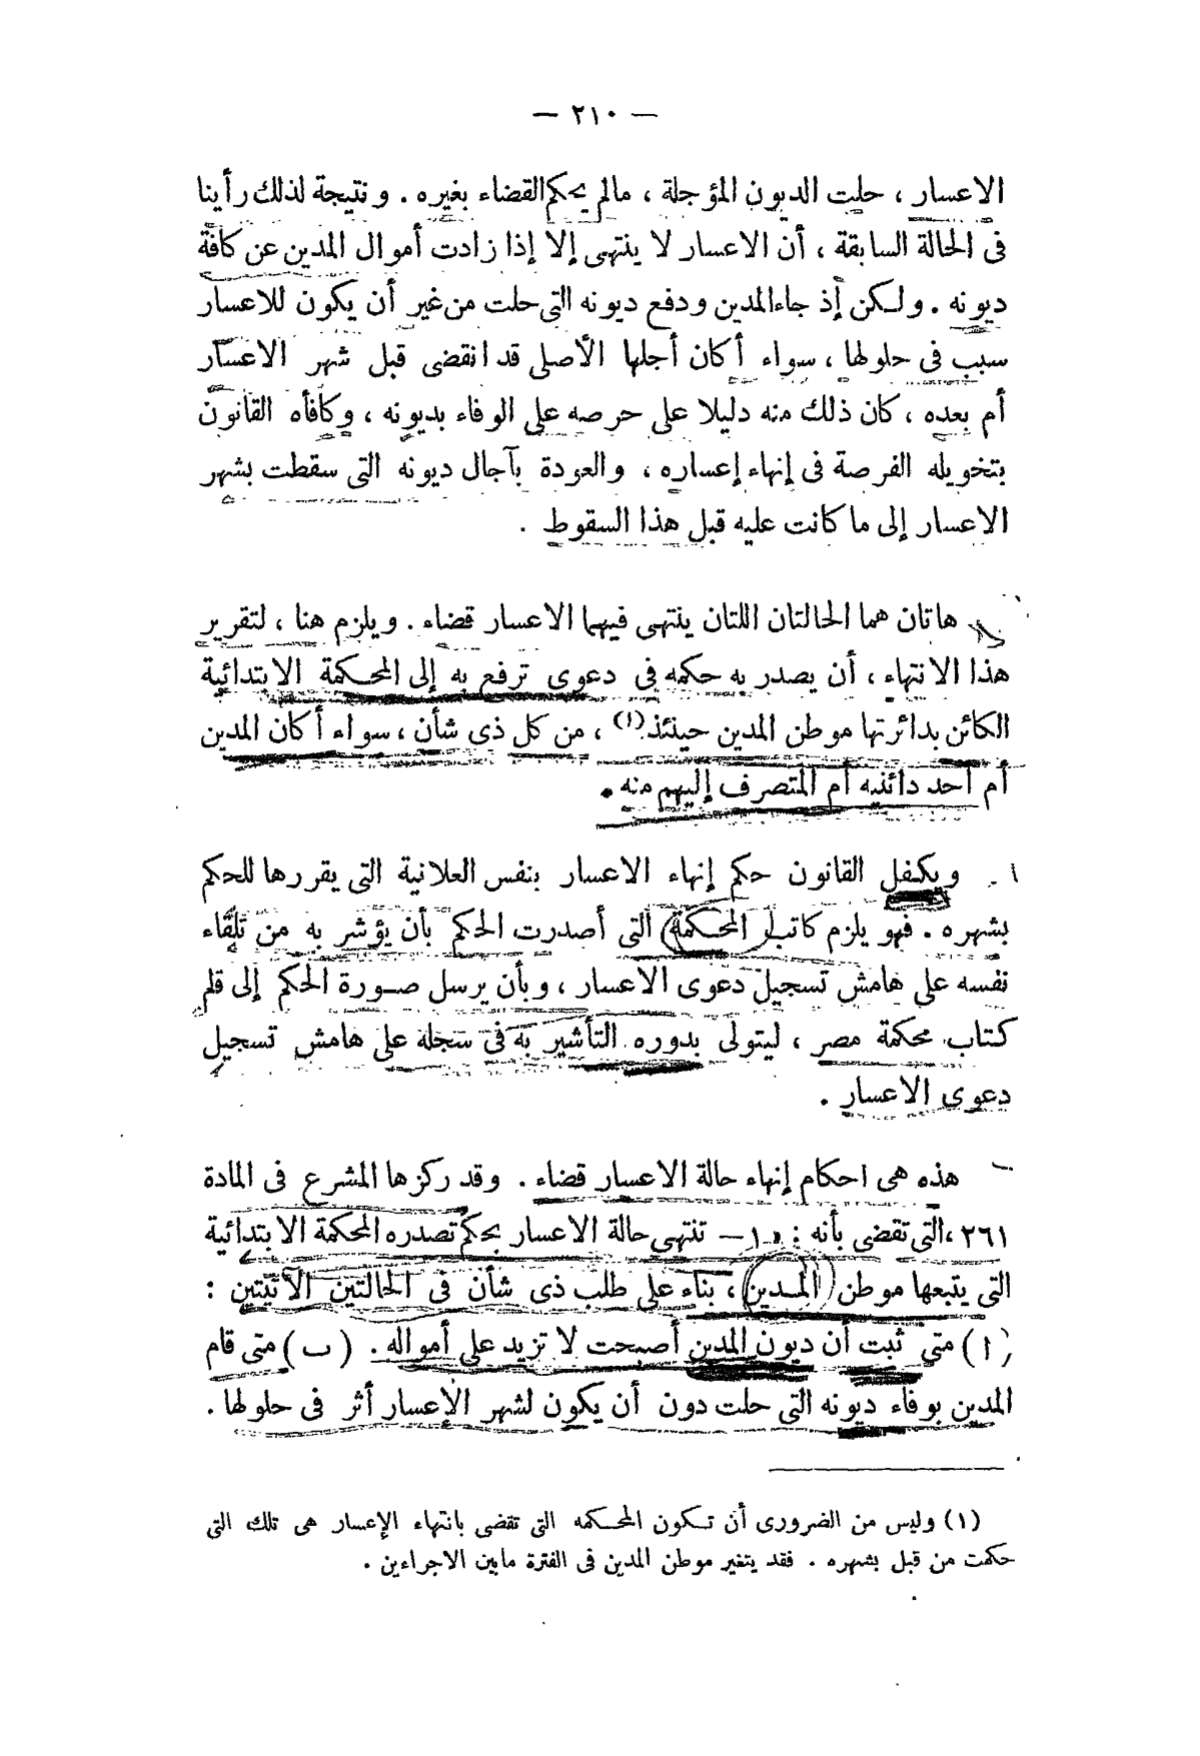 — ٢١٠ —
الاعسار ، حلت الديون المؤجلة ، مالم يحكم القضاء بغيره . ونتيجة لذلك رأينا
فى الحالة السابقة ، أن الاعسار لا ينتهى إلا إذا زادت أموال المدين عن كافة
ديونه . ولكن إذ جاء المدين ودفع ديونه التى حلت من غير أن يكون للاعسار
سبب فى حلولها ، سواء أكان أجلها الأصلى قد انقضى قبل شهر الاعسار
أم بعده ، كان ذلك منه دليلا على حرصه على الوفاء بديونه ، وكافأه القانون
بتخويله الفرصة فى إنهاء إعساره ، والعودة بآجال ديونه التى سقطت بشهر
الاعسار إلى ما كانت عليه قبل هذا السقوط .
هاتان هما الحالتان اللتان ينتهى فيهما الاعسار قضاء . ويلزم هنا ، لتقرير
هذا الانتهاء ، أن يصدر به حكمه فى دعوى ترفع به إلى المحكمة الابتدائية
الكائن بدائرتها موطن المدين حينئذ (١) ، من كل ذى شأن ، سواء أكان المدين
أم أحد دائنيه أم المتصرف إليهم منه .
ويكفل القانون حكم إنهاء الاعسار بنفس العلانية التى يقررها للحكم
بشهره . فهو يلزم كاتب المحكمة التى أصدرت الحكم بأن يؤشر به من تلقاء
نفسه على هامش تسجيل دعوى الاعسار ، وبأن يرسل صورة الحكم إلى قلم
كتاب محكمة مصر ، ليتولى بدوره التأشير به فى سجله على هامش تسجيل
دعوى الاعسار .
هذه هى احكام إنهاء حالة الاعسار قضاء . وقد ركزها المشرع فى المادة
٢٦١ ، التى تقضى بأنه : « ١ — تنتهى حالة الاعسار بحكم تصدره المحكمة الابتدائية
التى يتبعها موطن المدين ، بناء على طلب ذى شأن فى الحالتين الآتيتين :
( ا ) متى ثبت أن ديون المدين أصبحت لا تزيد على أمواله . ( ب ) متى قام
المدين بوفاء ديونه التى حلت دون أن يكون لشهر الإعسار أثر فى حلولها .
(١) وليس من الضرورى أن تكون المحكمه التى تقضى بانتهاء الإعسار هى تلك التى
حكمت من قبل بشهره . فقد يتغير موطن المدين فى الفترة مابين الاجراءين .